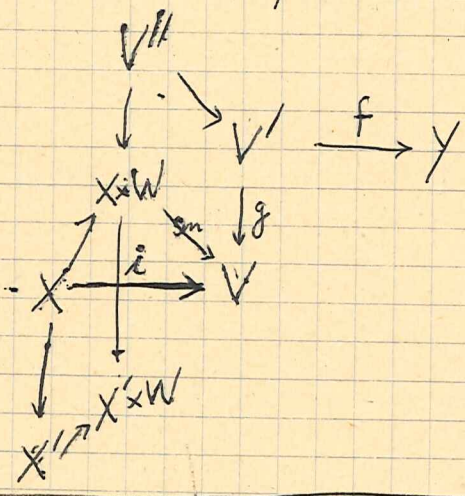 V''
V' f Y
X×W
sm g
X i V
X'×W
X'